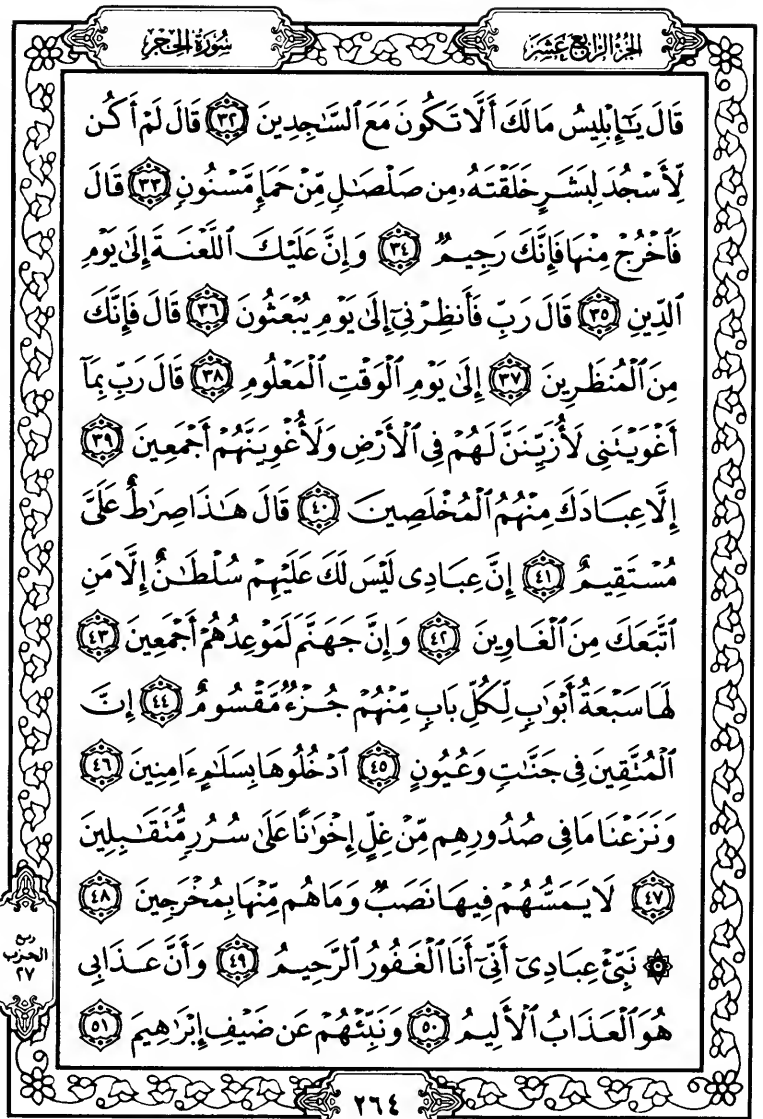 الجزء الرابع عشر
سورة الحجر
قَالَ يَـٰٓإِبْلِيسُ مَا لَكَ أَلَّا تَكُونَ مَعَ ٱلسَّـٰجِدِينَ ٣٢ قَالَ لَمْ أَكُن
لِّأَسْجُدَ لِبَشَرٍ خَلَقْتَهُۥ مِن صَلْصَـٰلٍ مِّنْ حَمَإٍ مَّسْنُونٍ ٣٣ قَالَ
فَٱخْرُجْ مِنْهَا فَإِنَّكَ رَجِيمٌ ٣٤ وَإِنَّ عَلَيْكَ ٱللَّعْنَةَ إِلَىٰ يَوْمِ
ٱلدِّينِ ٣٥ قَالَ رَبِّ فَأَنظِرْنِىٓ إِلَىٰ يَوْمِ يُبْعَثُونَ ٣٦ قَالَ فَإِنَّكَ
مِنَ ٱلْمُنظَرِينَ ٣٧ إِلَىٰ يَوْمِ ٱلْوَقْتِ ٱلْمَعْلُومِ ٣٨ قَالَ رَبِّ بِمَآ
أَغْوَيْتَنِى لَأُزَيِّنَنَّ لَهُمْ فِى ٱلْأَرْضِ وَلَأُغْوِيَنَّهُمْ أَجْمَعِينَ ٣٩
إِلَّا عِبَادَكَ مِنْهُمُ ٱلْمُخْلَصِينَ ٤٠ قَالَ هَـٰذَا صِرَٰطٌ عَلَىَّ
مُسْتَقِيمٌ ٤١ إِنَّ عِبَادِى لَيْسَ لَكَ عَلَيْهِمْ سُلْطَـٰنٌ إِلَّا مَنِ
ٱتَّبَعَكَ مِنَ ٱلْغَاوِينَ ٤٢ وَإِنَّ جَهَنَّمَ لَمَوْعِدُهُمْ أَجْمَعِينَ ٤٣
لَهَا سَبْعَةُ أَبْوَٰبٍ لِّكُلِّ بَابٍ مِّنْهُمْ جُزْءٌ مَّقْسُومٌ ٤٤ إِنَّ
ٱلْمُتَّقِينَ فِى جَنَّـٰتٍ وَعُيُونٍ ٤٥ ٱدْخُلُوهَا بِسَلَـٰمٍ ءَامِنِينَ ٤٦
وَنَزَعْنَا مَا فِى صُدُورِهِم مِّنْ غِلٍّ إِخْوَٰنًا عَلَىٰ سُرُرٍ مُّتَقَـٰبِلِينَ
٤٧ لَا يَمَسُّهُمْ فِيهَا نَصَبٌ وَمَا هُم مِّنْهَا بِمُخْرَجِينَ ٤٨
۞ نَبِّئْ عِبَادِىٓ أَنِّىٓ أَنَا ٱلْغَفُورُ ٱلرَّحِيمُ ٤٩ وَأَنَّ عَذَابِى
هُوَ ٱلْعَذَابُ ٱلْأَلِيمُ ٥٠ وَنَبِّئْهُمْ عَن ضَيْفِ إِبْرَٰهِيمَ ٥١
ربع
الحزب
٢٧
٢٦٤